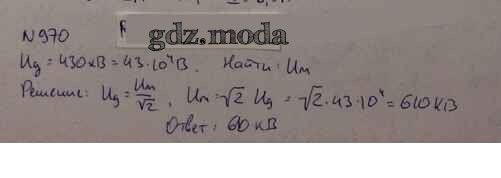 N 970
gdz.moda
Uд = 430кВ = 43·10⁴В. Найти: Uм
Решение: Uд = Uм/√2, Uм = √2 Uд = √2·43·10⁴ = 610 кВ
Ответ: 610 кВ